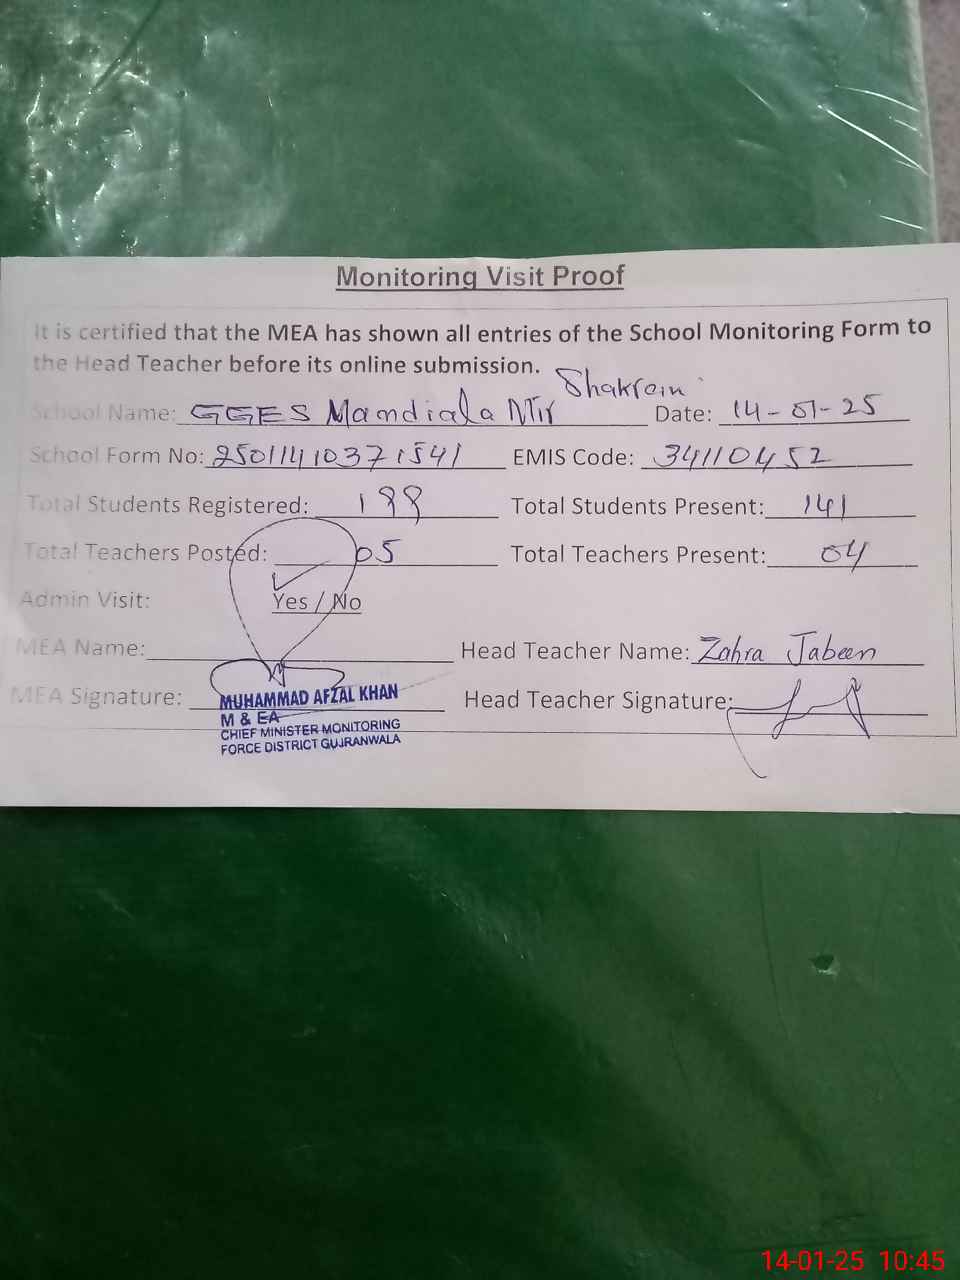 Monitoring Visit Proof
It is certified that the MEA has shown all entries of the School Monitoring Form to
the Head Teacher before its online submission.
School Name: GGES Mandiala Mir Shakran Date: 14-01-25
School Form No: 25011410371541 EMIS Code: 34110452
Total Students Registered: 188 Total Students Present: 141
Total Teachers Posted: 05 Total Teachers Present: 04
Admin Visit: Yes / No
MEA Name: Head Teacher Name: Zahra Jabeen
MEA Signature: Head Teacher Signature:
MUHAMMAD AFZAL KHAN
M & EA
CHIEF MINISTER MONITORING
FORCE DISTRICT GUJRANWALA
14-01-25 10:45